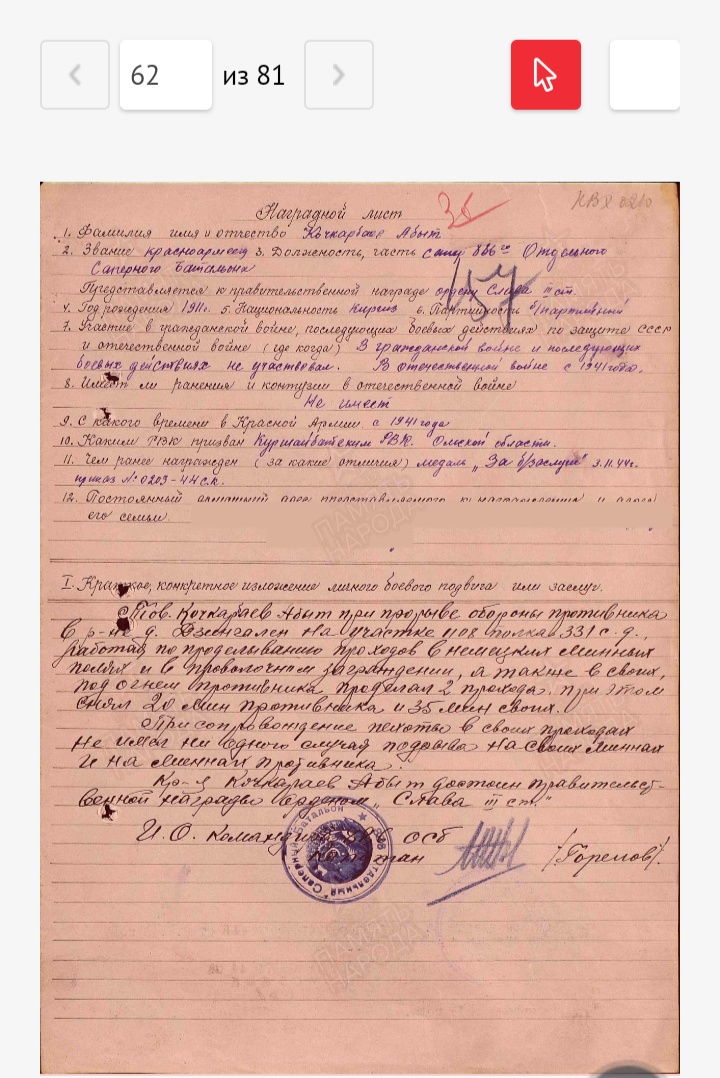 62 из 81
Наградной лист
36
1. Фамилия имя и отчество Кочкарбаев Абыт
2. Звание красноармеец 3. Должность, часть 886го Отдельного
Саперного батальона
157
Представляется к правительственной награде ордену Слава III ст.
4. Год рождения 1911г. 5. Национальность киргиз 6. Партийность б/партийный
7. Участие в гражданской войне, последующих боевых действиях по защите СССР
и отечественной войне (где когда) В гражданской войне и последующих
боевых действиях не участвовал. В отечественной войне с 1941 года.
8. Имеет ли ранения и контузии в отечественной войне
Не имеет
9. С какого времени в Красной Армии. с 1941 года
10. Каким РВК призван РВК. Омской области.
11. Чем ранее награжден (за какие отличия) медаль „За б/заслуги" 3.11.44г.
приказ № 0203-44 с.к.
12. Постоянный адрес представляемого к награждению и адрес
его семьи.
I. Краткое, конкретное изложение личного боевого подвига или заслуг.
Тов. Кочкарбаев Абыт при прорыве обороны противника
в р-не д. Дзенгален на участке 1108 полка 331 с.д.,
работая по проделыванию проходов в немецких минных
полях и в проволочном заграждении, а также в своих,
под огнем противника проделал 2 прохода. При этом
снял 20 мин противника и 35 мин своих.
При сопровождение пехоты в своих проходах
не имел ни одного случая подрыва на своих минах
и на минах противника.
Кр-ц Кочкараев Абыт достоин правительст-
венной награды орденом „Слава III ст."
И.О. командира 886 ОСБ
Капитан /Горелов/.
Отдельный Саперный Батальон
ПАМЯТЬ
НАРОДА